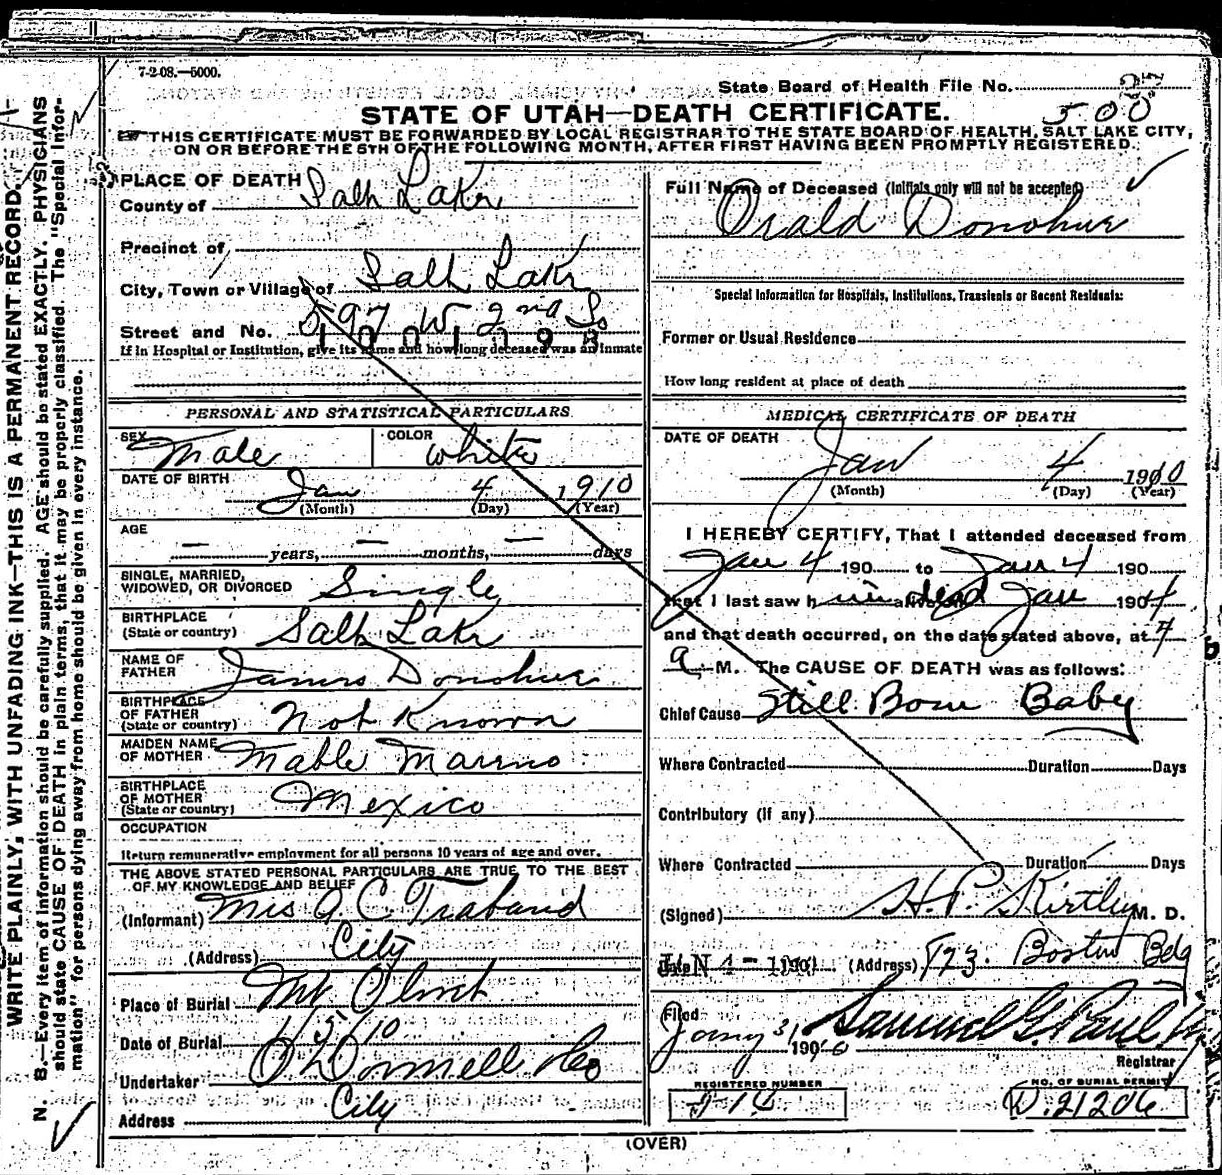 7-2-08.—5000.
State Board of Health File No.
500
STATE OF UTAH—DEATH CERTIFICATE.
THIS CERTIFICATE MUST BE FORWARDED BY LOCAL REGISTRAR TO THE STATE BOARD OF HEALTH, SALT LAKE CITY,
ON OR BEFORE THE 5TH OF THE FOLLOWING MONTH, AFTER FIRST HAVING BEEN PROMPTLY REGISTERED.
WRITE PLAINLY, WITH UNFADING INK—THIS IS A PERMANENT RECORD.
N. B.—Every item of information should be carefully supplied. AGE should be stated EXACTLY. PHYSICIANS
should state CAUSE OF DEATH in plain terms, that it may be properly classified. The "Special Infor-
mation" for persons dying away from home should be given in every instance.
PLACE OF DEATH
County of Salt Lake
Precinct of
City, Town or Village of Salt Lake
Street and No. 597 W 2nd So
If in Hospital or Institution, give its name and how long deceased was an inmate
PERSONAL AND STATISTICAL PARTICULARS
SEX Male COLOR White
DATE OF BIRTH Jan 4 1910
(Month) (Day) (Year)
AGE
— years, — months, — days
SINGLE, MARRIED,
WIDOWED, OR DIVORCED Single
BIRTHPLACE
(State or country) Salt Lake
NAME OF
FATHER James Donohue
BIRTHPLACE
OF FATHER
(State or country) Not Known
MAIDEN NAME
OF MOTHER Mable Marino
BIRTHPLACE
OF MOTHER
(State or country) Mexico
OCCUPATION
Return remunerative employment for all persons 10 years of age and over.
THE ABOVE STATED PERSONAL PARTICULARS ARE TRUE TO THE BEST
OF MY KNOWLEDGE AND BELIEF
(Informant) Mrs A C Traband
(Address) City
Place of Burial Mt Olivet
Date of Burial 1/5/10
Undertaker O'Donnell & Co
Address City
Full Name of Deceased (Initials only will not be accepted)
Orald Donohue
Special Information for Hospitals, Institutions, Transients or Recent Residents:
Former or Usual Residence
How long resident at place of death
MEDICAL CERTIFICATE OF DEATH
DATE OF DEATH
Jan 4 1910
(Month) (Day) (Year)
I HEREBY CERTIFY, That I attended deceased from
Jan 4 190 to Jan 4 190
that I last saw him dead Jan 4 190
and that death occurred, on the date stated above, at 7
a M. The CAUSE OF DEATH was as follows:
Chief Cause Still Born Baby
Where Contracted Duration Days
Contributory (if any)
Where Contracted Duration Days
(Signed) H. P. Kirtley M. D.
JAN 4 - 1910 (Address) 723 Boston Bdg
Filed
Jany 31 1910 Samuel G. Paul
Registrar
REGISTERED NUMBER
NO. OF BURIAL PERMIT
D.21206
(OVER)